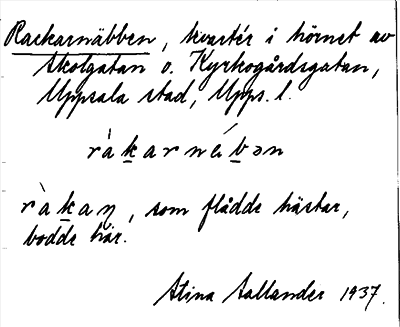 Rackarnäbben, kvarter i hörnet av
Skolgatan o. Kyrkogårdsgatan,
Uppsala stad, Upps. l.
ràkarnébən
ràkaɳ, som flådde hästar,
bodde här.
Stina Sallander 1937.